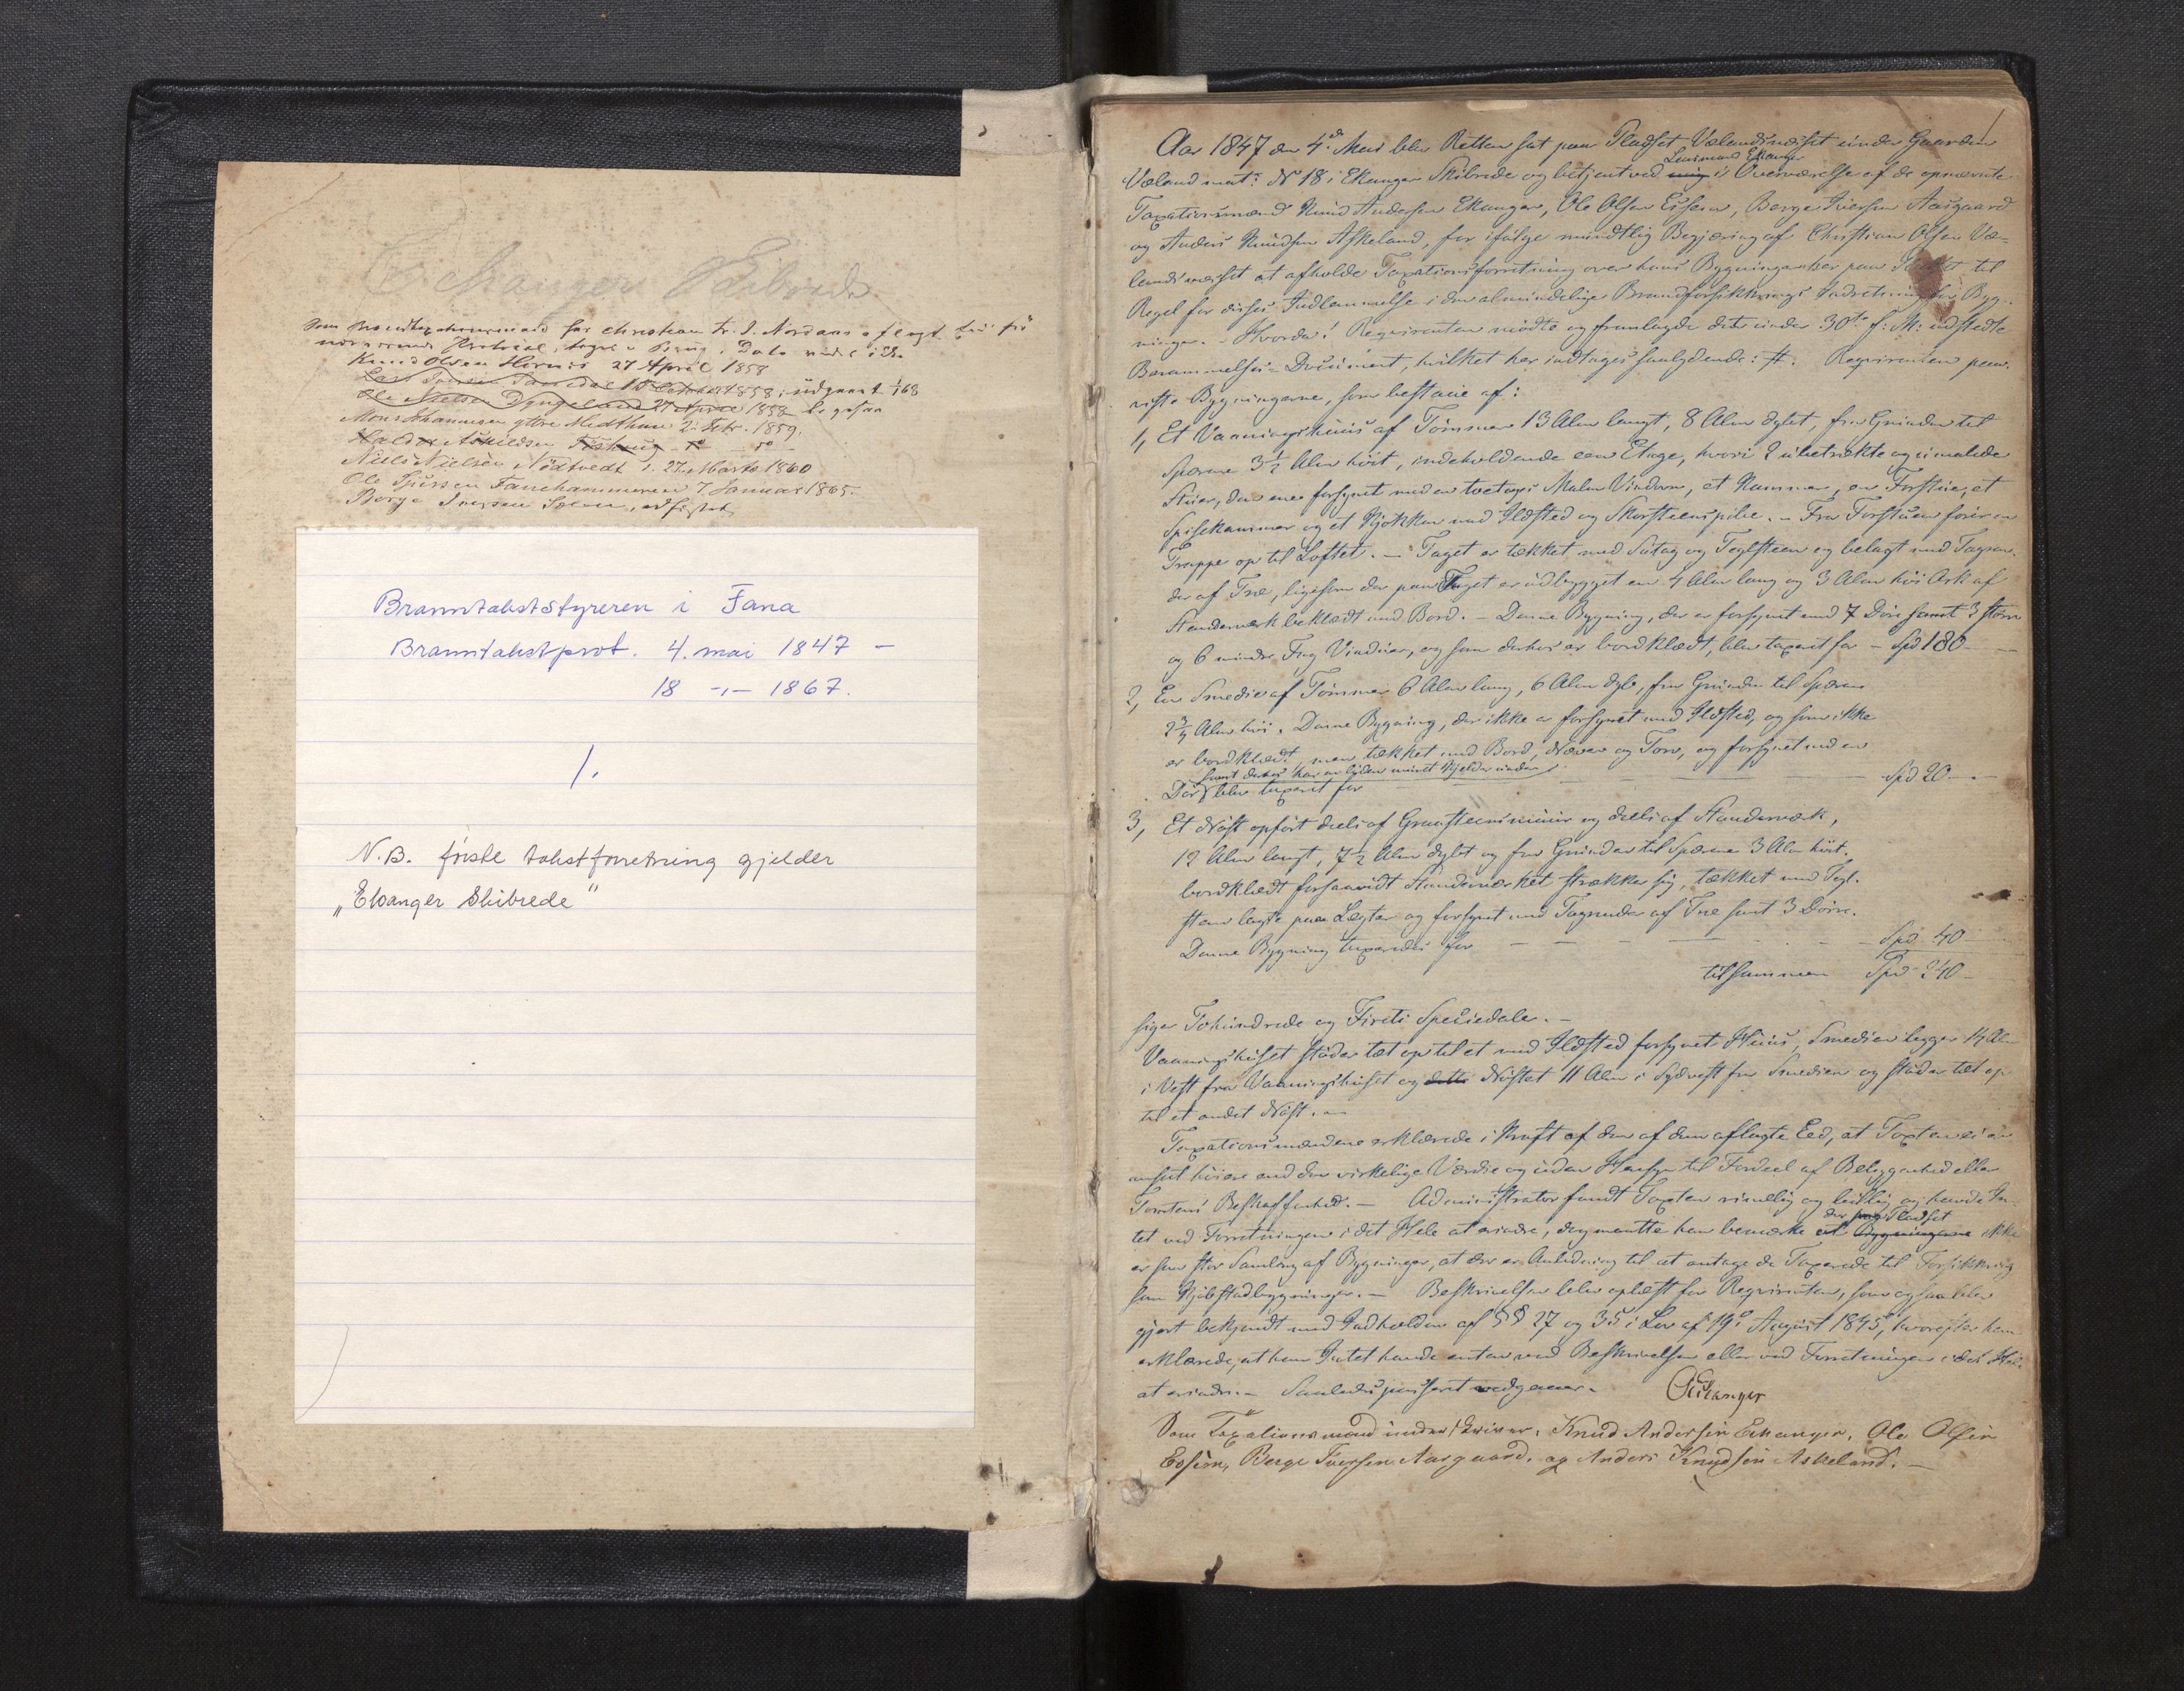 Ekanger Skibrede
Som Brandtaxationsmænd har christian Tr. S. Nordaas aflagt Ed før
nærværende Protocol, toges i Brug. Dato vides ikke.
Knud Olsen Hornis 27 April 1858
Lars 15 October 1858; udgaaet 1/1 68
Ole Nielsen Dyngeland 27 April 1858 ligesaa
Mons Mhannesen ytre Midthun 2. Febr. 1859.
Haldor Askildsen
Niels Nielsen Nödtvedt d. 27 Marts 1860
Ole Sjursen Fanehammeren 7. Januar 1865.
Børge Iversen
Branntakststyreren i Fana
Branntakstprot. 4. mai 1847 –
18 -"- 1867.
1.
N.B. første takstforretning gjelder
„Ekanger Skibrede"
1
Aar 1847 den 4de Mai blev Retten sat paa Pladset Vælandsnæsset under Gaarden
Lensmand Ekanger
Væland mat: No 18 i Ekanger Skibrede og betjent ved mig i Overværelse af de opnævnte
Taxationsmænd Knud Andersen Ekanger, Ole Olsen Espen, Berge Iversen Aasgaard
og Anders Knudsen Askeland, for ifølge mundtlig Begjæring af Christian Olsen Væ-
landsnæsset at afholde Taxationsforretning over hans Bygninger her paa Stedet til
Regel for disses Indlemmelse i den almindelige Brandforsikkrings Indretning for Byg-
ninger. – Hvorda! Requirenten mødte og fremlagde dets under 30te f: M: udstedte
Berammelses-Document, hvilket her indtages saalydende: #. Requirenten paa-
viste Bygningerne, som bestaae af:
1, Et Vaaningshuus af Tømmer 13 Alen langt, 8 Alen dybt, fra Grunden til
Sperrene 3½ Alen høit, indeholdende een Etage, hvori 2 ubetrækte og umalede
Stuer, den ene forsynet med en toetages Malm Vindovn, et Kammer, en Forstue, et
Spisekammer og et Kjøkken med Ildsted og Skorsteenspibe. – Fra Forstuen fører en
Trappe op til Loftet. – Taget er tækket med Sutag og Teglsteen og belagt med Tagren-
der af Træ, ligesom der paa Taget er udbygget en 4 Alen lang og 3 Alen høi Ark af
Standerværk beklædt med Bord. – Denne Bygning, der er forsynet med 7 Døre samt 3 større
og 6 mindre Fag Vinduer, og som derhos er bordklædt, blev taxeret for – Spd 180 –
2, En Smedie af Tømmer 6 Alen lang, 6 Alen dyb, fra Grunden til Sperrene
2¾ Alen høi. Denne Bygning, der ikke er forsynet med Ildsted, og som ikke
er bordklædt, men tækket med Bord, Næver og Torv, og forsynet med en
samt derhos har en liden muret Kjelder under
Dør blev taxeret for Spd 20 –
3, Et Nøst opført deels af Graasteensmuur og deels af Standerværk,
12 Alen langt, 7½ Alen dybt og fra Grunden til Sperrene 3 Alen høit.
bordklædt forsaavidt Standerværket strækker sig, tækket med Tegl-
steen lagte paa Lægter og forsynet med Tagrender af Træ samt 3 Døre.
Denne Bygning taxeredes for – – – Spd 40 –
tilsammen Spd 240 –
siger Tohundrede og Fireti Speciedaler. –
Vaaningshuset støder tæt op til et med Ildsted forsynet Huus, Smedien ligger 14 Alen
i Vest fra Vaaningshuset og dette Nøstet 11 Alen i Sydvest fra Smedien og støder tæt op
til et andet Nøst. –
Taxationsmændene erklærede i Kraft af den af dem aflagte Eed, at Taxten ei er
ansat høiere end den virkelige Værdie og uden Hensyn til Fordeel af Beliggenhed eller
Tomtens Beskaffenhed. – Administrator fandt Taxten rimelig og billig og havde In-
tet ved Forretningen i det Hele at erindre, dog maatte han bemærke at Bygningerne ikke
der paa Pladset
er saa stor Samling af Bygninger, at der er Anledning til at antage de Taxerede til Forsikkring
som Kjøbstadbygninger. – Beskrivelsen blev oplæst for Requirenten, som ogsaa blev
gjort bekjendt med Indholden af §§ 27 og 35 i Lov af 19de August 1845, hvorefter han
erklærede, at han Intet havde enten ved Beskrivelsen eller ved Forretningen i det Hele
at erindre. – Saaledes passeret vedgaaer. Ekanger
Som Taxationsmænd underskriver: Knud Andersen Ekanger, Ole Olsen
Espen, Berge Iversen Aasgaard, og Anders Knudsen Askeland. –